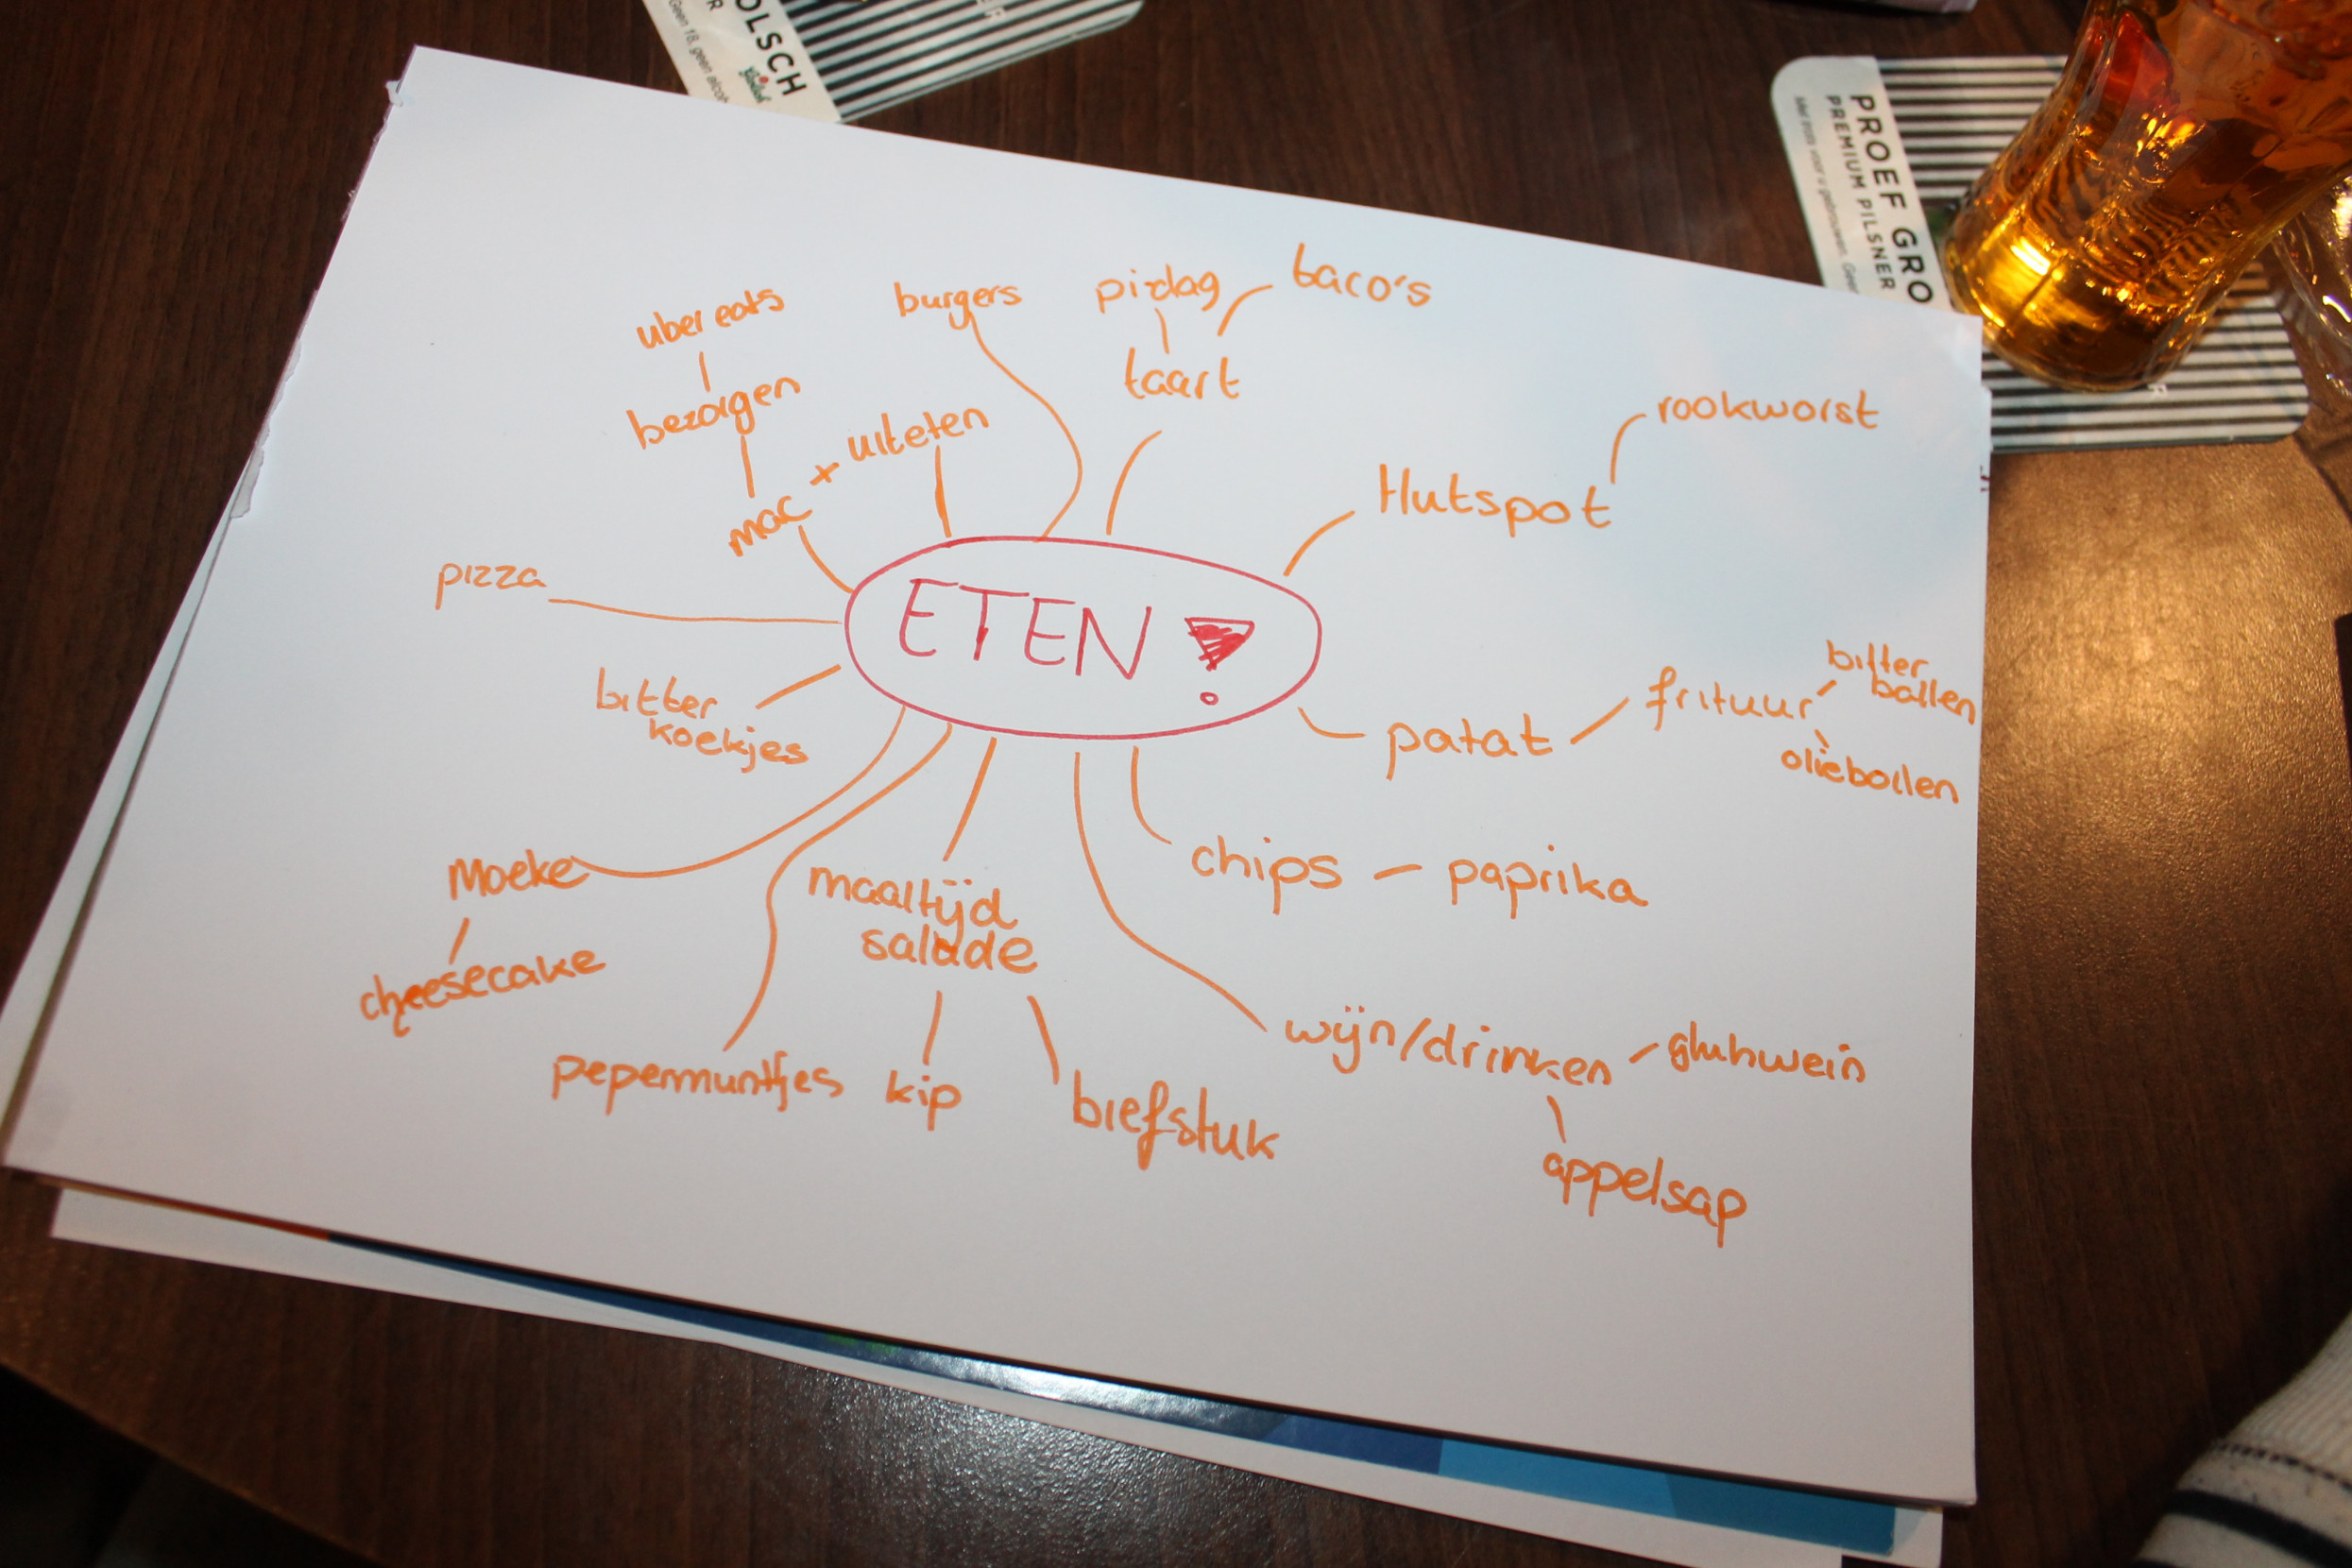 OLSCH
Geen 18, geen alcoh
PROEF GRO
PREMIUM PILSNER
taco's
burgers
uber eats
taart
bezorgen
uiteten
rookworst
mac x
Hutspot
pizza
ETEN !
bitter
koekjes
patat
frituur
bitter
ballen
oliebollen
Moeke
cheesecake
maaltijd
salade
chips - paprika
pepermuntjes
kip
biefstuk
wijn/drinken
gluhwein
appelsap